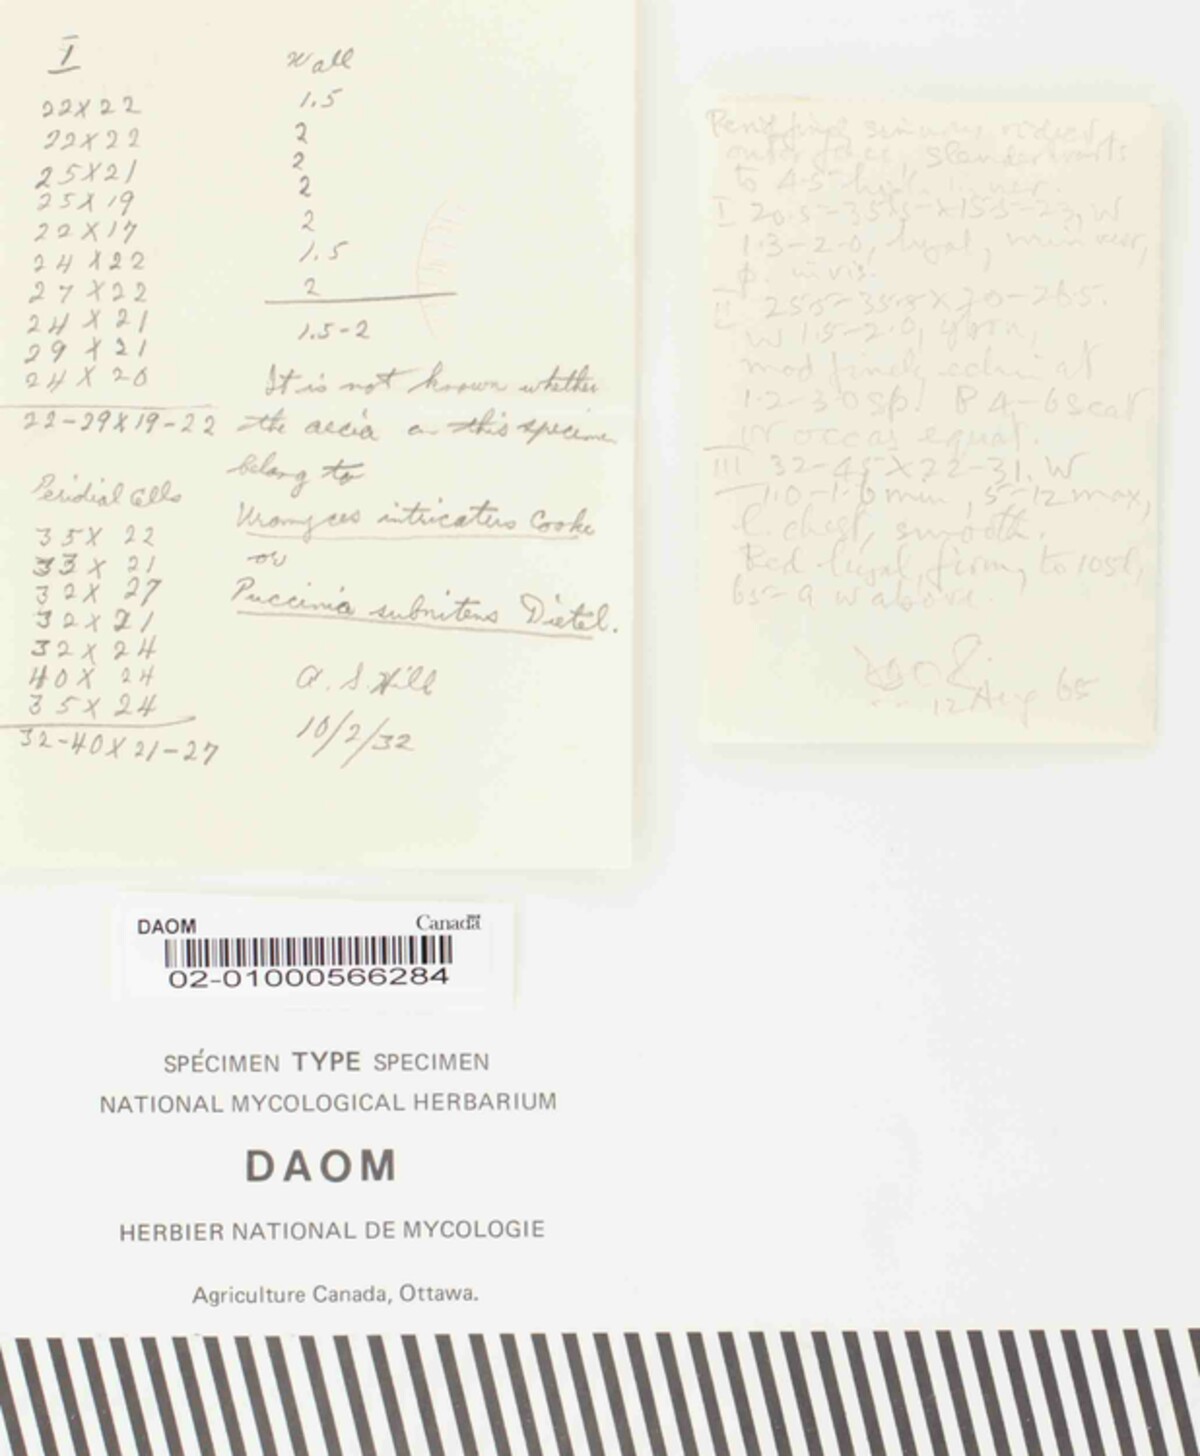 I
22X22
22X22
25X21
25X19
22X17
24X22
27X22
24X21
29X21
24X20
22-29X19-22
Peridial Cells
35X 22
33X 21
32X 27
32X21
32X 24
40X 24
35X24
32-40X21-27
Wall
1.5
2
2
2
2
1.5
2
1.5-2
It is not known whether
the aecia on this specimen
belong to
Uromyces intricatus Cooke
or
Puccinia subnitens Dietel.
A. S. Hill
10/2/32
outer face, slender warts
to 4.5 high inner.
I 20.5-35.5-X15.5-23, W
1.3-2.0, hyal, min verr,
p. invis.
II 25.5-35.5X20-26.5.
W 1.5-2.0, ybrn,
mod finely echin at
1.2-3.0sp. P 4-6 scat
or occas equat.
III 32-45X22-31. W
1.0-1.6 min, 5-12 max,
l. chest, smooth.
Ped hyal, firm, to 105l,
6.5-9 w above.
12 Aug 65
DAOM
Canada
02-01000566284
SPÉCIMEN TYPE SPECIMEN
NATIONAL MYCOLOGICAL HERBARIUM
DAOM
HERBIER NATIONAL DE MYCOLOGIE
Agriculture Canada, Ottawa.